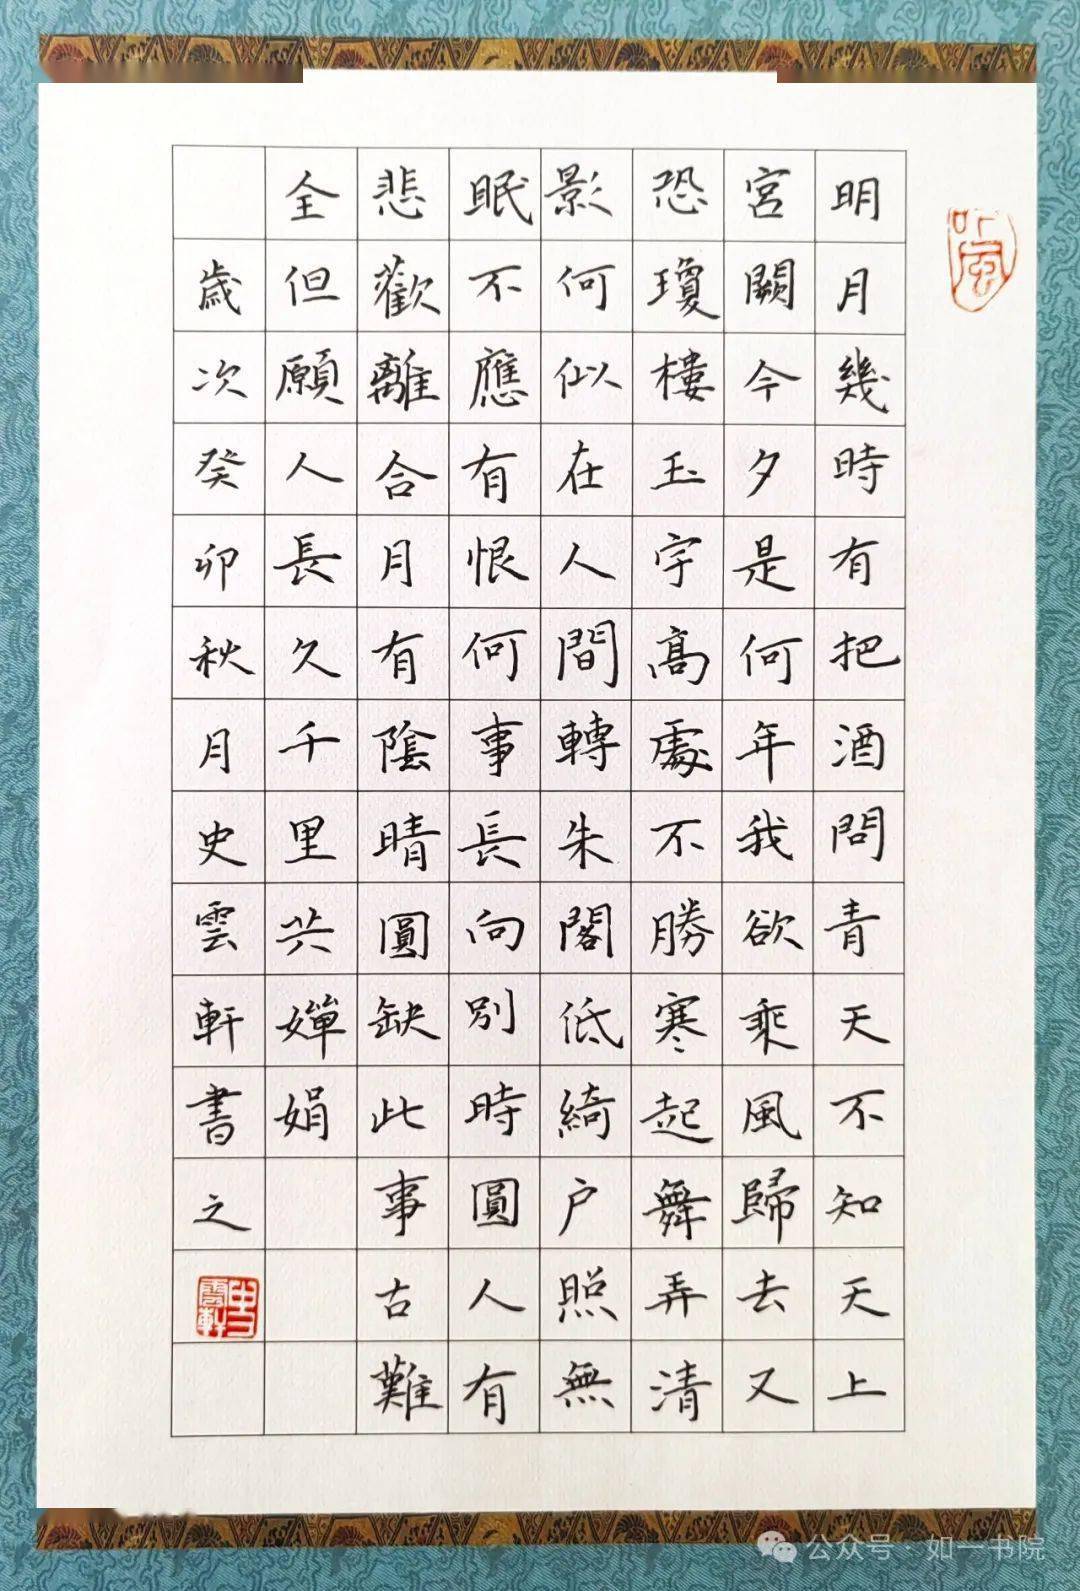 明月幾時有把酒問青天不知天上
宮闕今夕是何年我欲乘風歸去又
恐瓊樓玉宇高處不勝寒起舞弄清
影何似在人間轉朱閣低綺户照無
眠不應有恨何事長向別時圓人有
悲歡離合月有陰晴圓缺此事古難
全但願人長久千里共嬋娟
歲次癸卯秋月史雲軒書之
史雲軒
公众号·如一书院